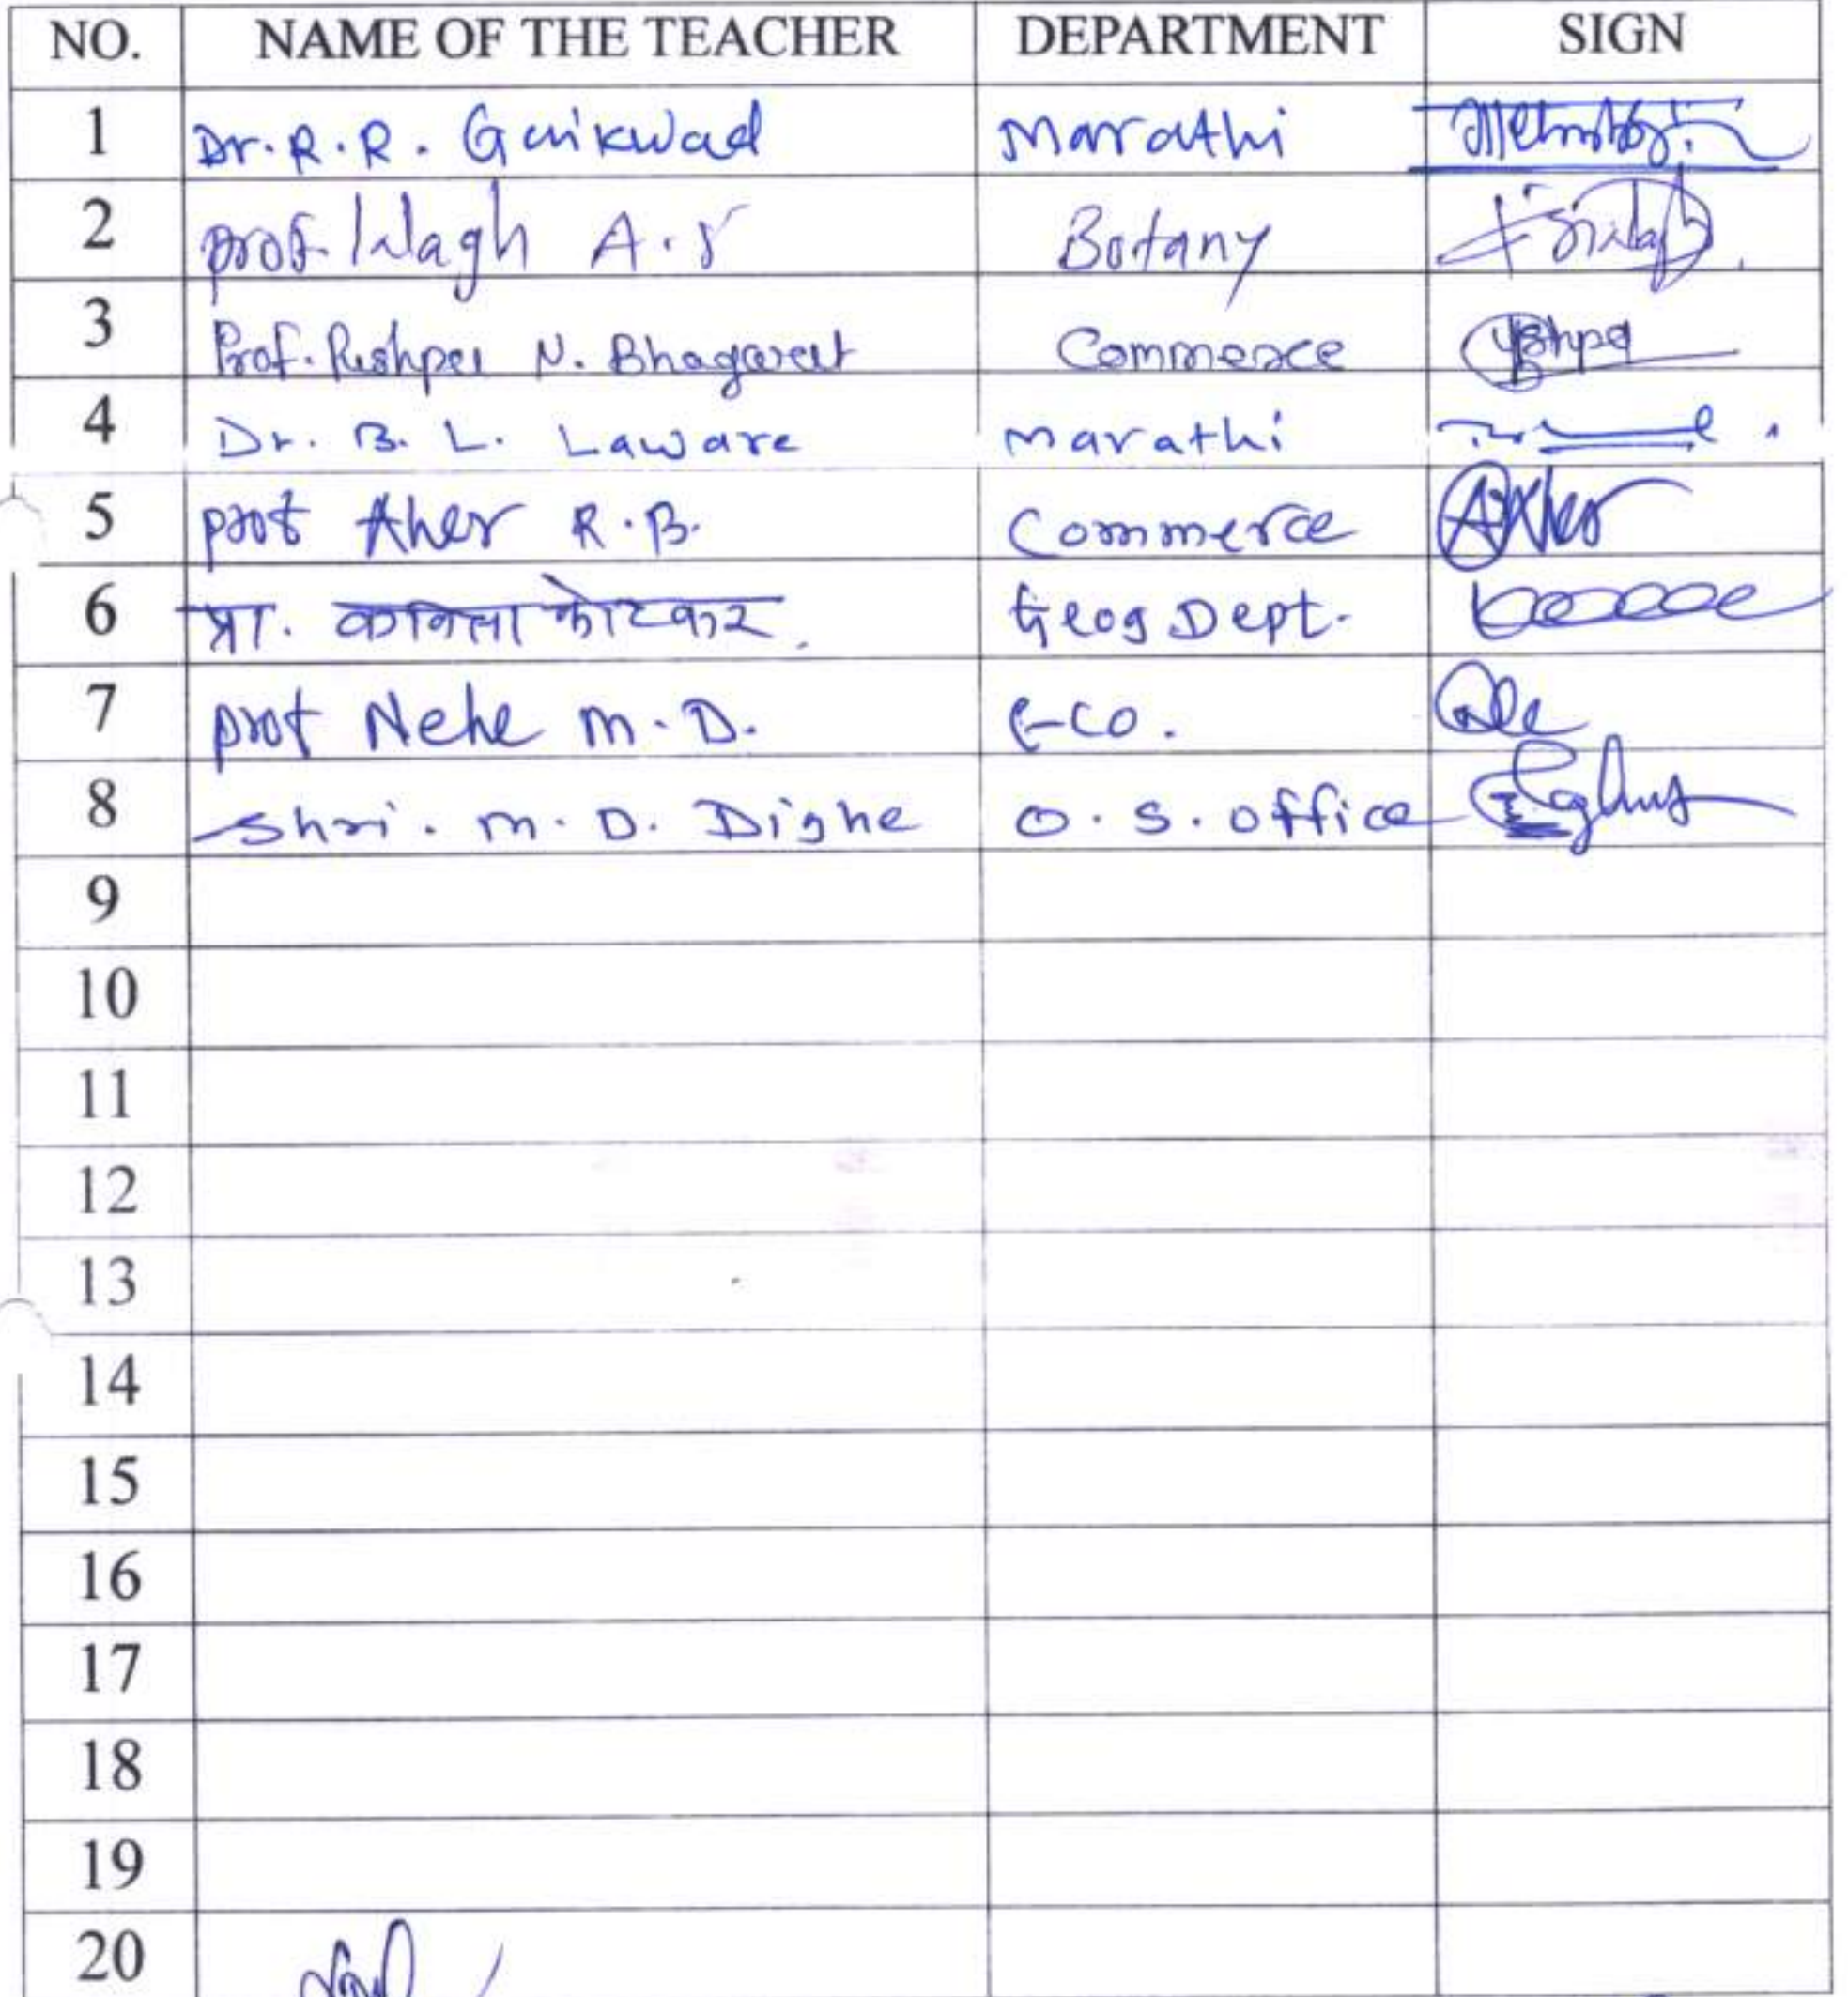 NO. NAME OF THE TEACHER DEPARTMENT SIGN
1 Dr. R. R. Gaikwad Marathi
2 prof. Wagh A. S Botany
3 Prof. Pushpa N. Bhagwat Commerce
4 Dr. B. L. Laware marathi
5 prof Aher R. B. Commerce
6 प्रा. कविता कोटकर. Geog Dept.
7 prof Nehe m. D. Eco.
8 Shri. m. D. Dighe O. S. office
9
10
11
12
13
14
15
16
17
18
19
20